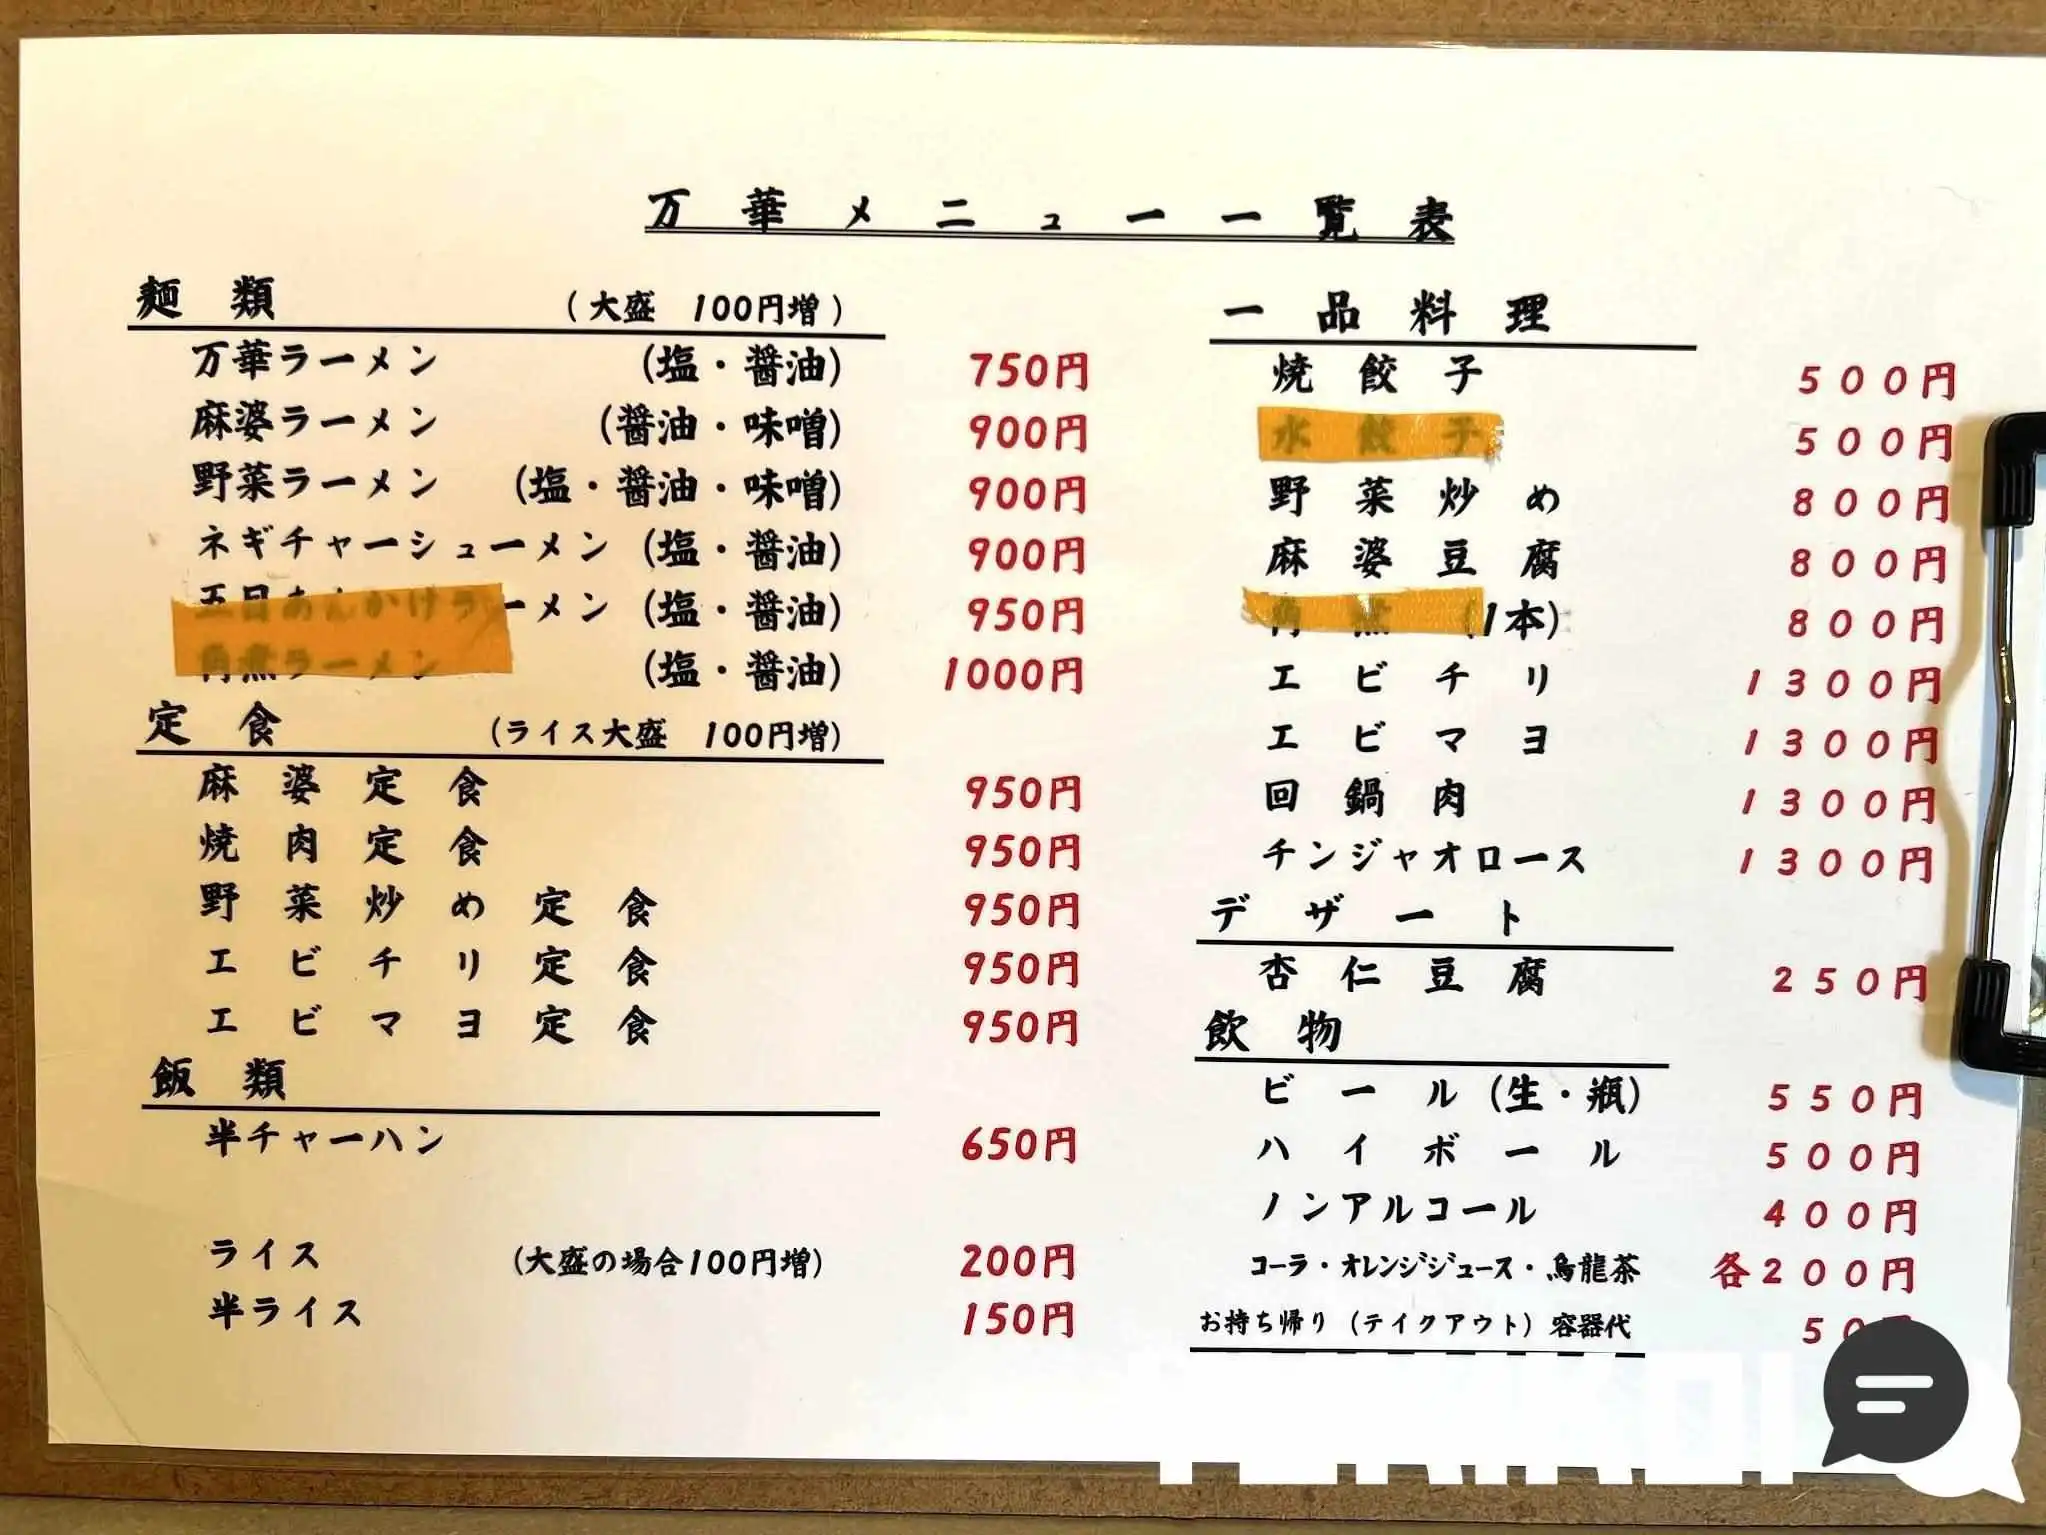 万華メニュー一覧表
麺類 (大盛 100円増)
万華ラーメン (塩・醤油) 750円
麻婆ラーメン (醤油・味噌) 900円
野菜ラーメン (塩・醤油・味噌) 900円
ネギチャーシューメン (塩・醤油) 900円
五目あんかけラーメン (塩・醤油) 950円
角煮ラーメン (塩・醤油) 1000円
定食 (ライス大盛 100円増)
麻婆定食 950円
焼肉定食 950円
野菜炒め定食 950円
エビチリ定食 950円
エビマヨ定食 950円
飯類
半チャーハン 650円
ライス (大盛の場合100円増) 200円
半ライス 150円
一品料理
焼餃子 500円
水餃子 500円
野菜炒め 800円
麻婆豆腐 800円
角煮 (1本) 800円
エビチリ 1300円
エビマヨ 1300円
回鍋肉 1300円
チンジャオロース 1300円
デザート
杏仁豆腐 250円
飲物
ビール (生・瓶) 550円
ハイボール 500円
ノンアルコール 400円
コーラ・オレンジジュース・烏龍茶 各200円
お持ち帰り (テイクアウト) 容器代 50